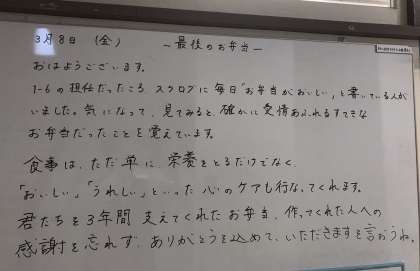 3月8日 (金) ～最後のお弁当～
おはようございます。
1-6の担任だったころ、スクログに毎日「お弁当がおいしい」と書いている人が
いました。気になって、見てみると、確かに愛情あふれるすてきな
お弁当だったことを覚えています。
食事は、ただ単に、栄養をとるだけでなく、
「おいしい」「うれしい」といった心のケアも行なってくれます。
君たちを3年間支えてくれたお弁当。作ってくれた人への
感謝を忘れず、ありがとうを込めて、いただきますを言おうね。